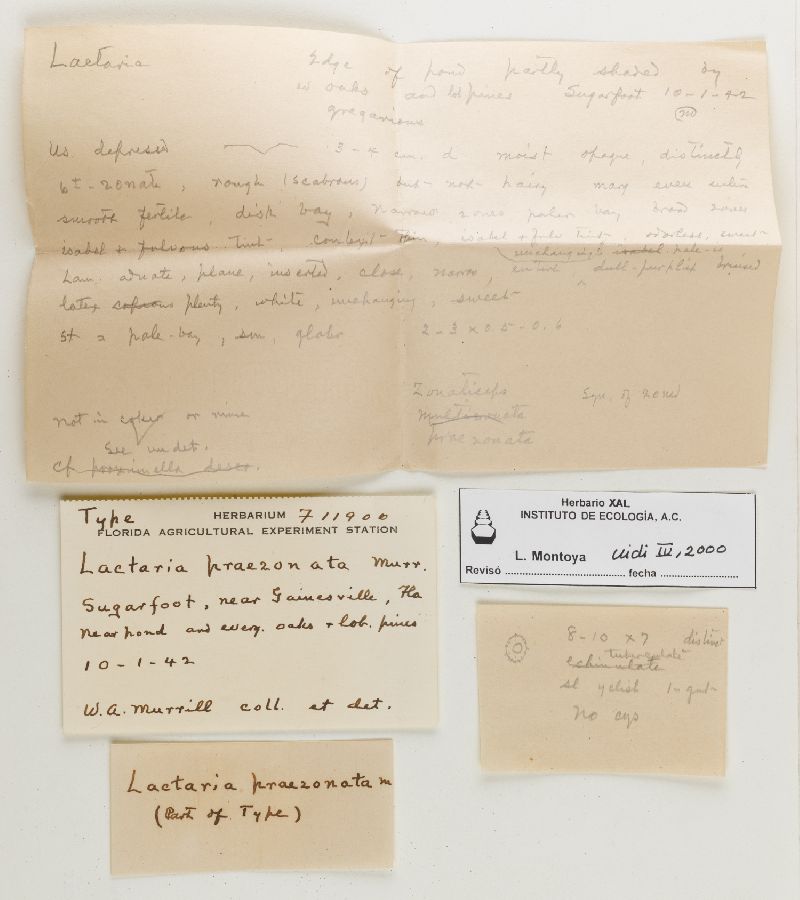 Lactaria
Edge of pond partly shaded by
w oaks and lob pines Sugarfoot 10-1-42
gregarious
no
Us depressd 3-4 cm. d moist opaque, distinctly
6±-zonate, rough (scabrous) but not hairy marg even
smooth fertile, disk bay, narrow zones paler bay broad zones
isabel + fulvous tint, context thin, isabel + fulv tint, odorless, sweet
unchanging isabel pale-is
Lam. adnate, plane, inserted, close, narrow, entire dull-purplish bruised
latex copious plenty, white, unchanging, sweet
St = pale-bay, sm, glabr
2-3 x 0.5-0.6
Zonaticeps Syn. of zoned
multizonata
praezonata
not in or mine
See undet.
cf proximella descr.
Type HERBARIUM F 11900
FLORIDA AGRICULTURAL EXPERIMENT STATION
Lactaria praezonata Murr.
Sugarfoot, near Gainesville, Fla
Near pond and everg. oaks + lob. pines
10-1-42
W.A. Murrill coll. et det.
Herbario XAL
INSTITUTO DE ECOLOGÍA, A.C.
L. Montoya vidi IV, 2000
Revisó fecha
8-10 x 7 distinct
tuberculate
echinulate
sl yelish 1-gut-
No cys
Lactaria praezonata m
(Part of Type)